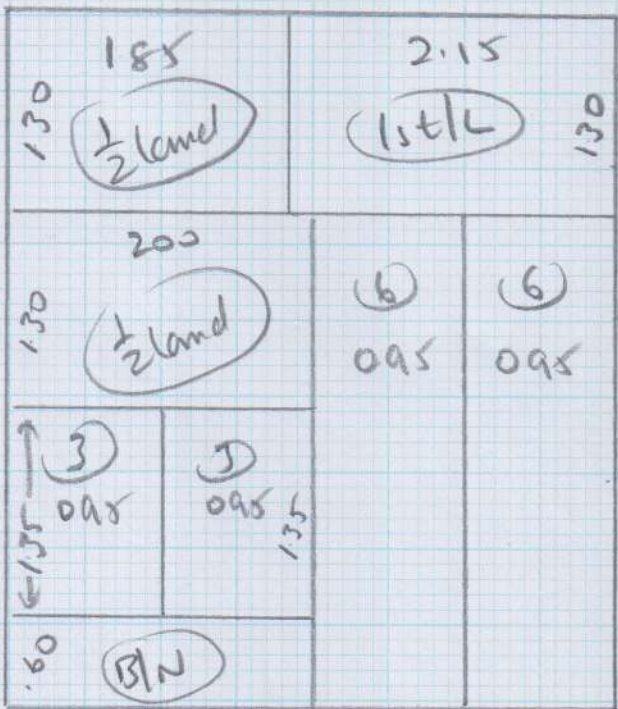 185
130
1/2 land
2.15
1st/L
130
200
130
1/2 land
6
095
6
095
3
095
←1.35→
3
095
1.35
.60
B/N